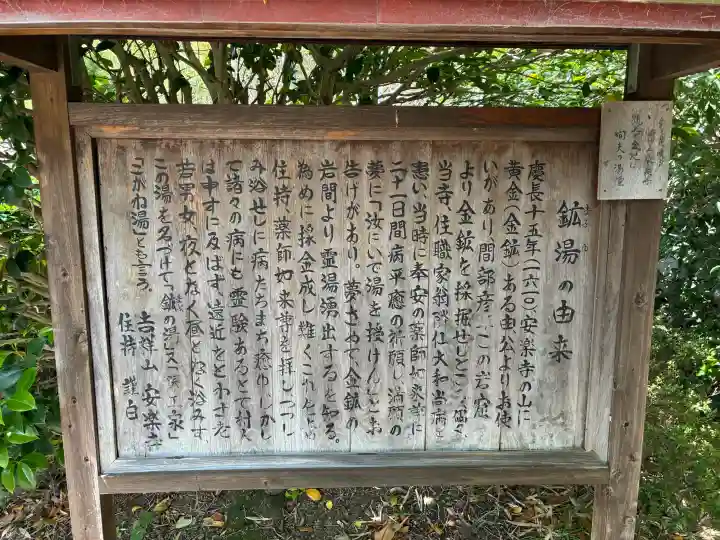 鉱湯の由来
慶長十五年(一六一〇)、安楽寺の山に
黄金(金鉱)ある由、公よりお使
いがあり間部彦
この岩窟
より金鉱を採掘せしところ
当寺住職
仁大和尚病を
患い当時に奉安の薬師如来尊に
二十一日間病平癒の祈願し満願の
夢に「汝にいで湯を授けん」とお
告げがあり。夢さめて金鉱の
岩間より霊湯湧出するを知る。
為めに採金成し難くこれをとめ
住持、薬師如来尊を拝しつつし
み浴せしに病たちまち癒ゆ、しかし
て諸々の病にも霊験あるとて村人
は申すに及ばず、遠近をとわず老
若男女、夜となく昼となく浴みす
この湯を名づけて「鉱の湯」又「
こがね湯」とも言う。
吉祥山 安楽寺
住持 謹白